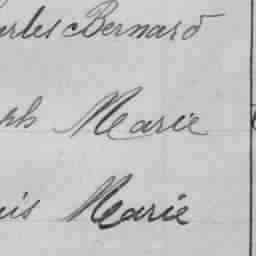 arles Bernard
eph Marie
uis Marie